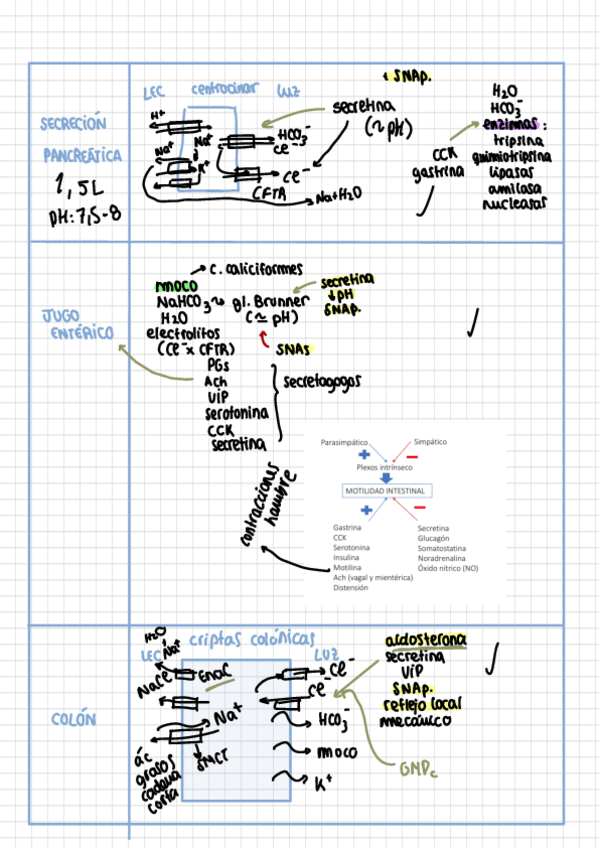 SECRECIÓN
PANCREÁTICA
1,5L
pH: 7,5-8
LEC centroacinar LUZ
H+
Na+
Na+
K+
HCO3-
Cl-
Cl-
CFTR
Na+H2O
SNAp.
secretina
(~pH)
CCK
gastrina
H2O
HCO3-
enzimas:
tripsina
quimiotripsina
lipasas
amilasa
nucleasas
JUGO
ENTÉRICO
c. caliciformes
moco
NaHCO3 gl. Brunner
H2O (≃ pH)
electrolitos
(Cl- x CFTR)
secretina
↓pH
SNAp.
SNAs
PGs
Ach
VIP
serotonina
CCK
secretina
secretagogos
contracciones
hambre
Parasimpático Simpático
Plexos intrínseco
MOTILIDAD INTESTINAL
Gastrina
CCK
Serotonina
Insulina
Motilina
Ach (vagal y mientérica)
Distensión
Secretina
Glucagón
Somatostatina
Noradrenalina
Óxido nítrico (NO)
COLÓN
criptas colónicas
LEC LUZ
H2O
Na+
NaCl
ENaC
Na+
SMCT
ác
grasos
cadena
corta
Cl-
Cl-
HCO3-
moco
K+
aldosterona
secretina
VIP
SNAp.
reflejo local
mecánico
GMPc